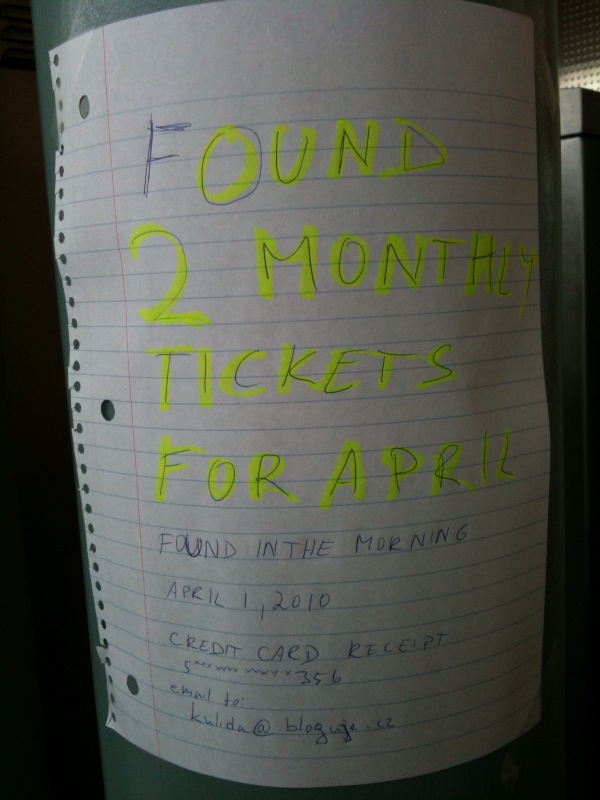 FOUND
2 MONTHLY
TICKETS
FOR APRIL
FOUND IN THE MORNING
APRIL 1, 2010
CREDIT CARD RECEIPT
5************356
email to:
kulida@bloguje.cz